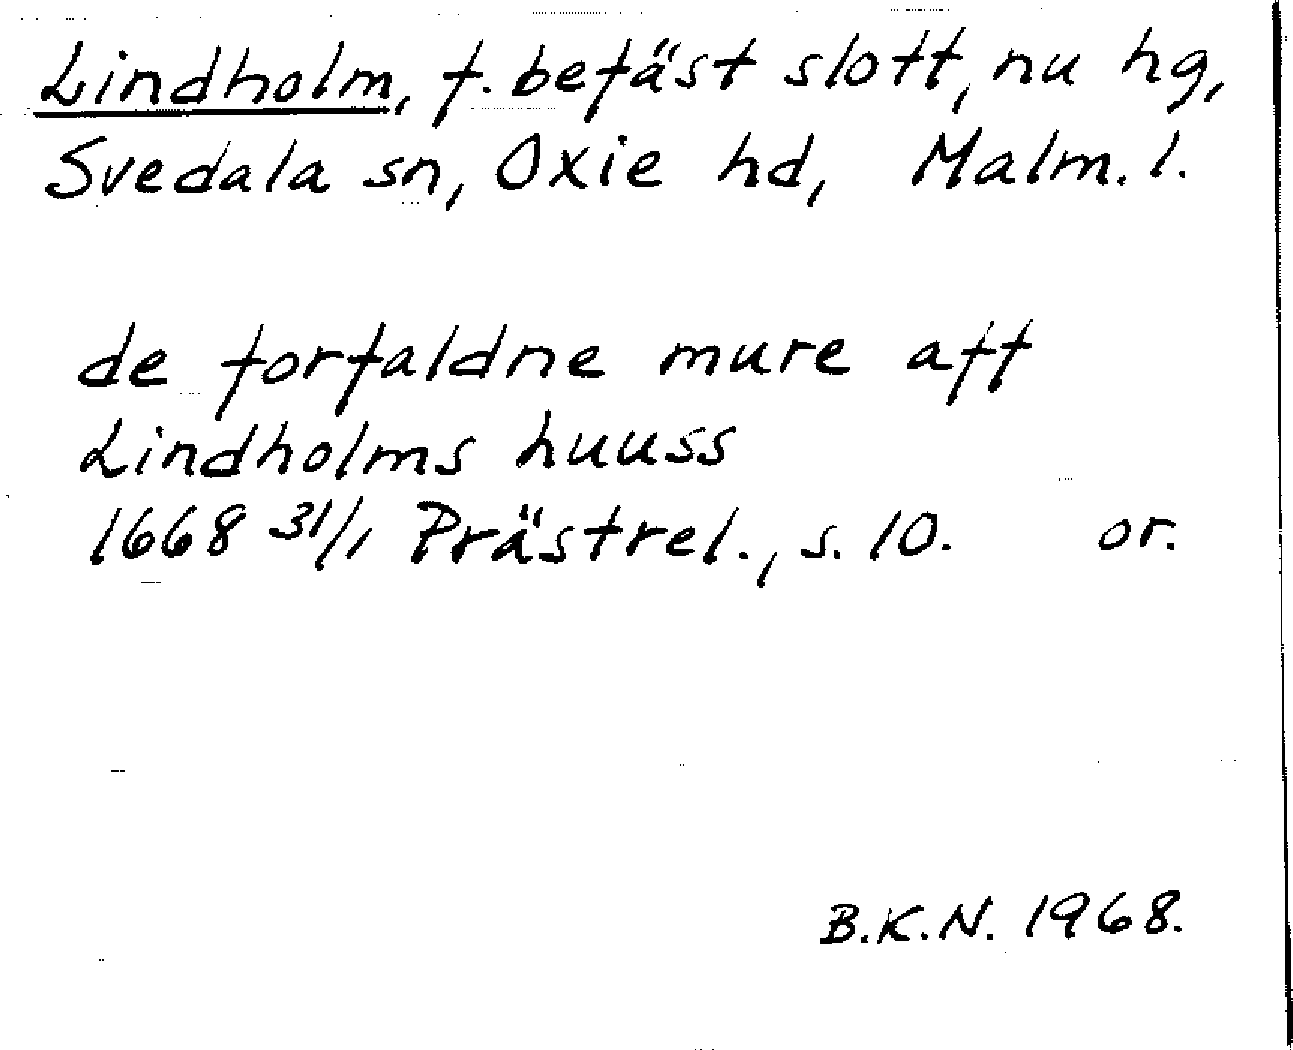 Lindholm, f. befäst slott, nu hg,
Svedala sn, Oxie hd, Malm. l.
de forfaldne mure aff
Lindholms huuss
1668 31/1 Prästrel., s. 10. or.
B.K.N. 1968.